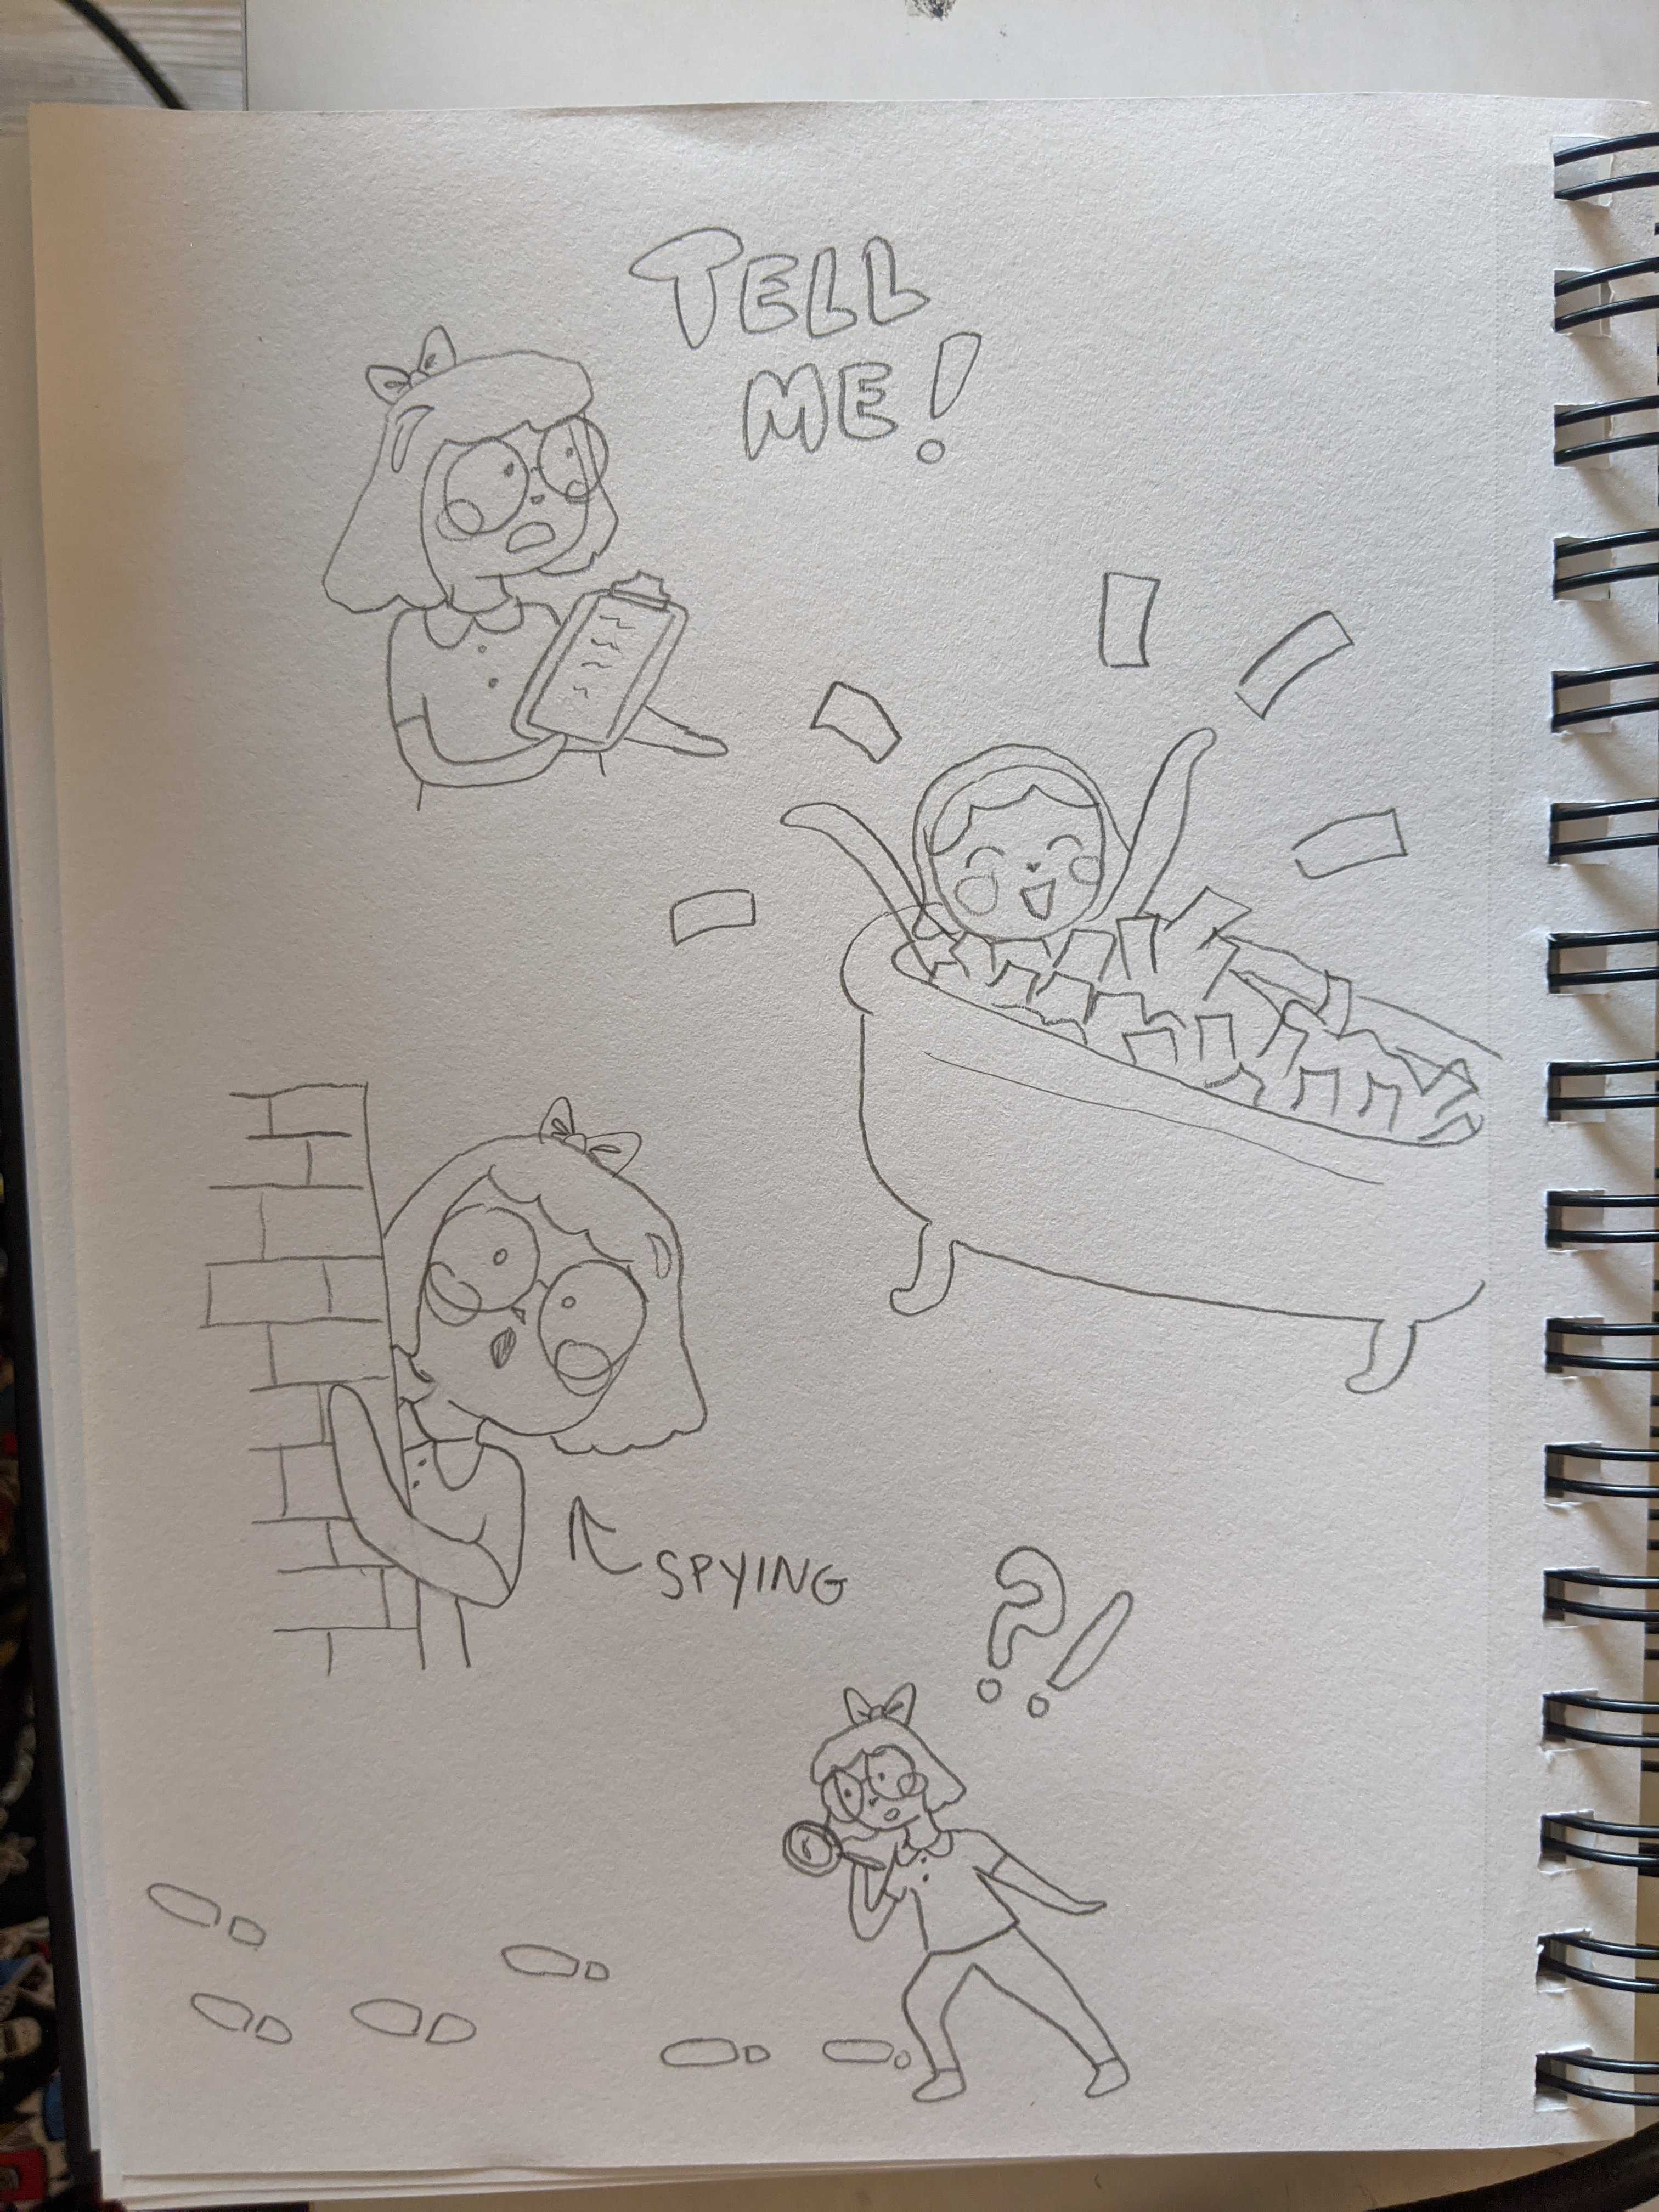 TELL
ME!
SPYING
?!